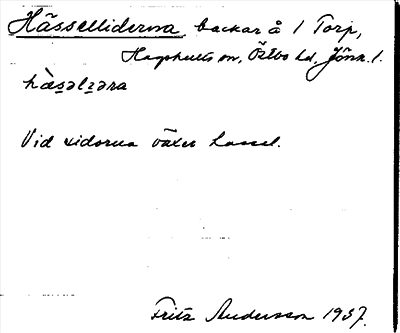 Hässelliderna backar å 1 Torp,
Hagshults sn, Östbo hd, Jönk. l.
hä̀səlꞮəra
Vid sidorna växer hassel.
Fritz Andersson 1937.